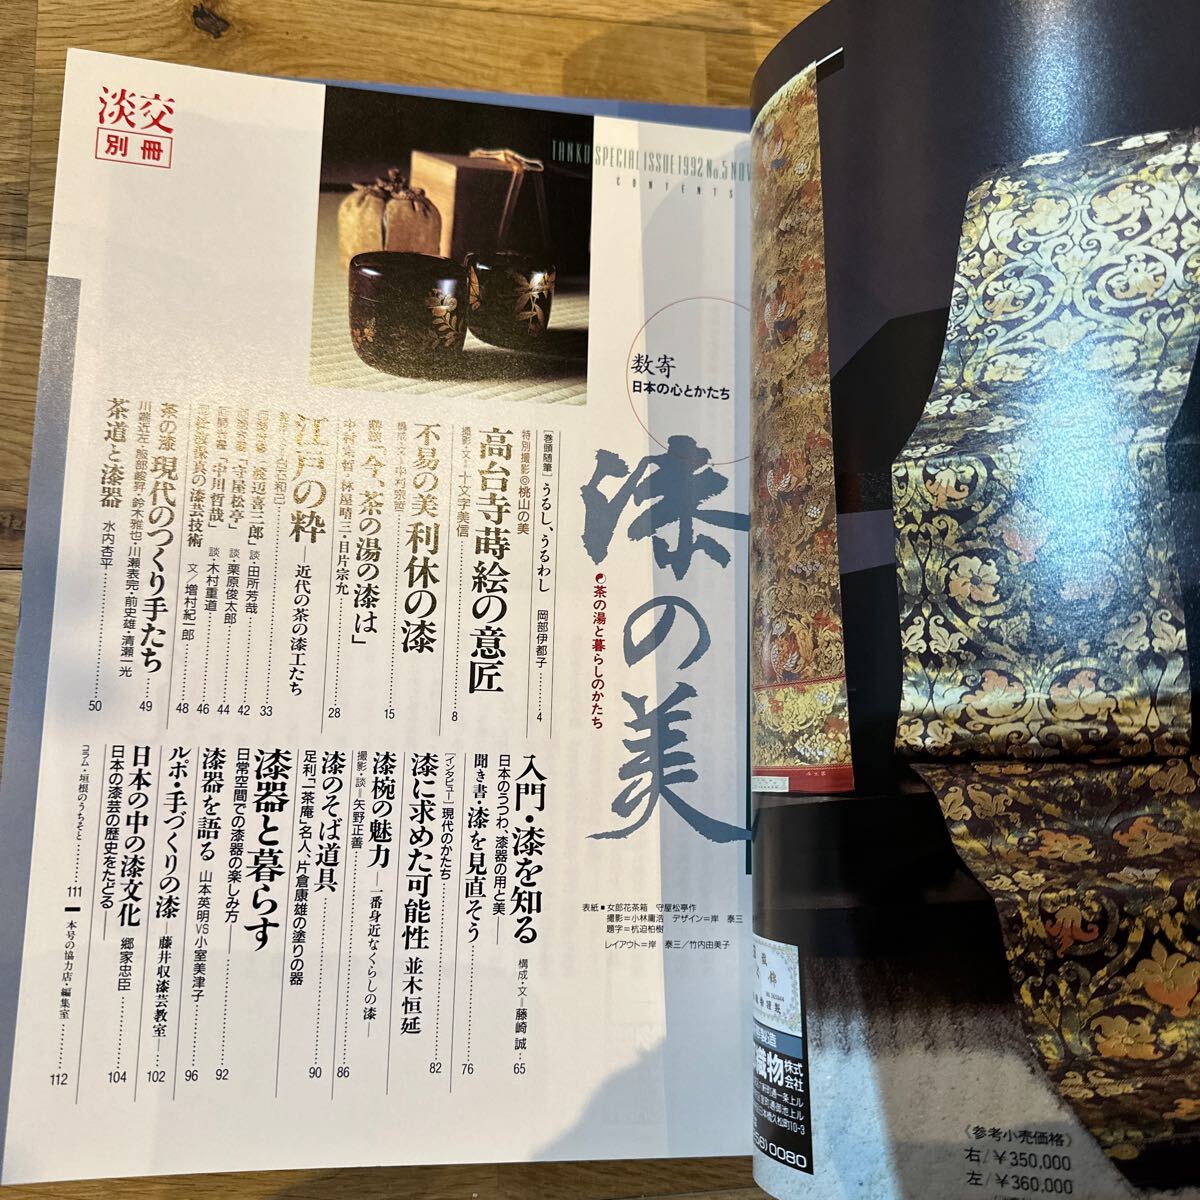 淡交
別冊
TANKO SPECIAL ISSUE 1992 No.5 NOV
CONTENTS
数寄
日本の心とかたち
漆の美
茶の湯と暮らしのかたち
[巻頭随筆] うるし、うるわし 岡部伊都子 4
特別撮影◎桃山の美
高台寺蒔絵の意匠
撮影・文・十文字美信 8
不易の美 利休の漆
構成・文・中村宗哲 15
鼎談「今、茶の湯の漆は」
中村宗哲・林屋晴三・目片宗允 28
江戸の粋―近代の茶の漆工たち
「渡辺喜三郎」 談・田所芳哉 33
「守屋松亭」 談・栗原俊太郎 42
「中川哲哉」 談・木村重道 44
の漆芸技術 文/増村紀一郎 46
48
茶の漆 現代のつくり手たち
川瀬表完・前史雄・清瀬一光 49
茶道と漆器 水内杏平 50
入門・漆を知る
日本のうつわ、漆器の用と美 構成・文=藤崎誠 65
聞き書・漆を見直そう 76
[インタビュー]現代のかたち
漆に求めた可能性 並木恒延 82
漆椀の魅力―一番身近なくらしの漆―
撮影・談=矢野正善 86
漆のそば道具
足利「一茶庵」名人、片倉康雄の塗りの器 90
漆器と暮らす
日常空間での漆器の楽しみ方 92
漆器を語る 山本英明VS小室美津子 96
ルポ・手づくりの漆―藤井収漆芸教室 102
日本の中の漆文化
日本の漆芸の歴史をたどる 郷家忠臣 104
コラム・垣根のうちそと 111
本号の協力店・編集室 112
表紙■女郎花茶箱 守屋松亭作
撮影=小林庸浩 デザイン=岸 泰三
題字=杭迫柏樹
レイアウト=岸 泰三/竹内由美子
織物株式会社
0080
《参考小売価格》
右/¥350,000
左/¥360,000